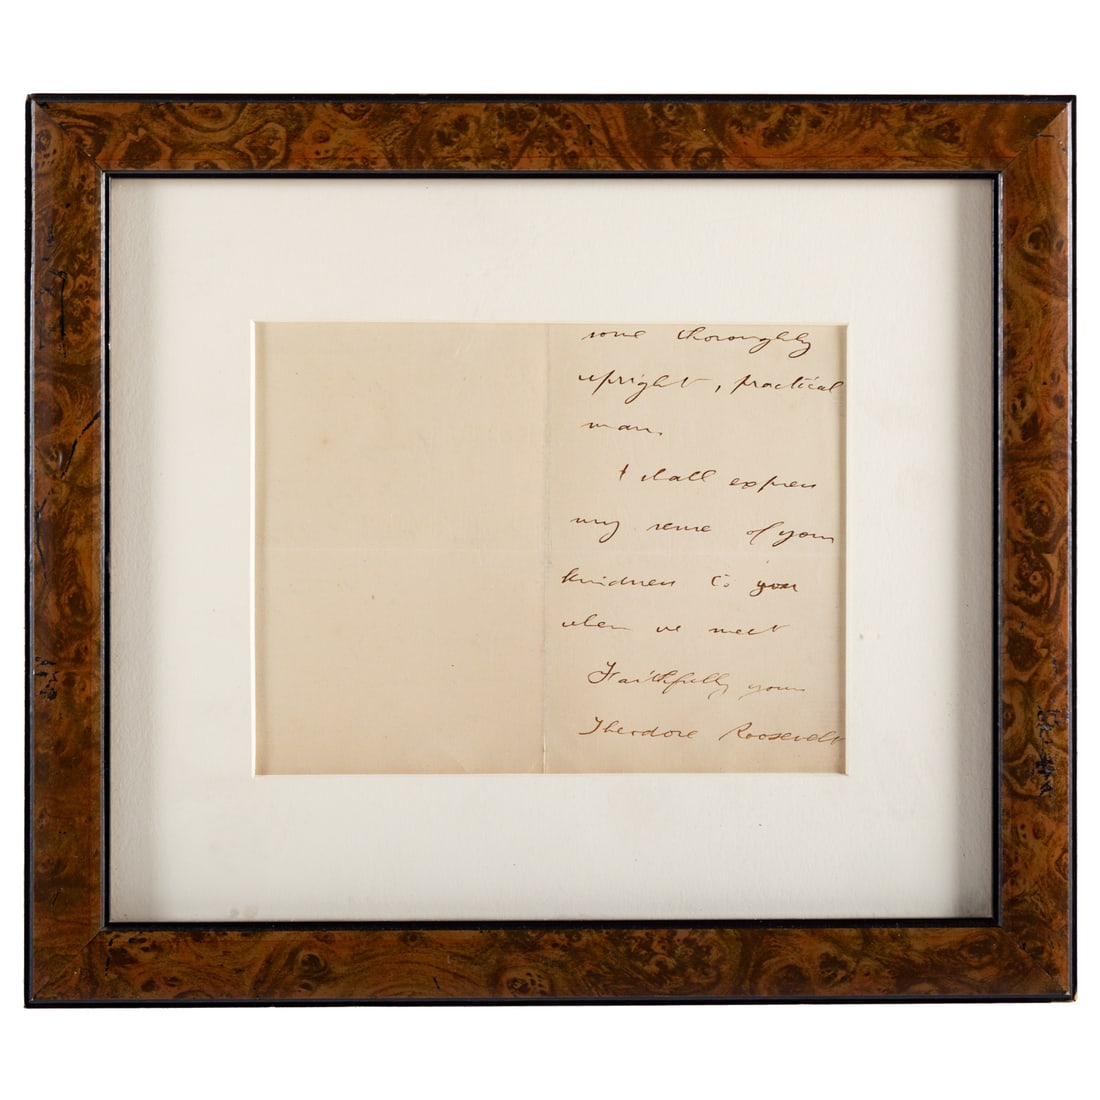 some thoroughly
upright, practical
man.
I shall express
my sense of your
kindness to you
when we meet
Faithfully yours
Theodore Roosevelt